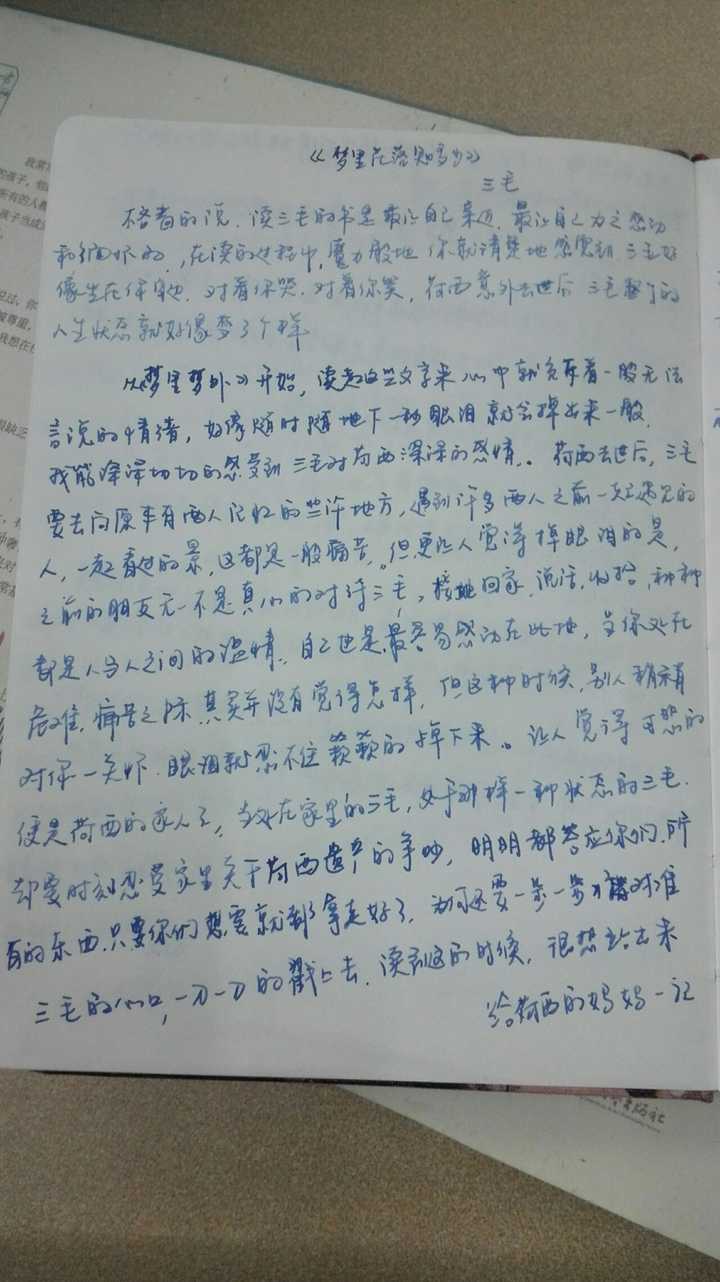 《梦里花落知多少》
三毛
不吝啬的说，读三毛的书是最让自己亲近，最让自己为之感动
和缅怀的，在读的过程中，魔力般地你就清楚地感觉到三毛好
像坐在你旁边，对着你哭，对着你笑，荷西意外去世后三毛整个的
人生状态就好像变了个样
从《梦里梦外》开始，读起这些文字来心中就负有着一股无法
言说的情绪，好像随时随地下一秒眼泪就会掉出来一般，
我能深深切切的感受到三毛对荷西深深的感情。荷西去世后，三毛
要去向原本有两人记忆的些许地方，遇到许多两人之前一起遇见的
人，一起看过的景，这都是一般痛苦。但更让人觉得掉眼泪的是，
之前的朋友无一不是真心的对待三毛，接她回家，说话，收拾，种种
都是人与人之间的温情。自己也是最容易感动在此地，当你处在
危难，痛苦之际，其实并没有觉得怎样，但这种时候，别人稍稍有
对你一关怀，眼泪就忍不住簌簌的掉下来。让人觉得可恶的
便是荷西的家人了，当处在家里的三毛，处于那样一种状态的三毛，
却要时刻忍受家里关于荷西遗产的争吵，明明都答应你们，所
有的东西，只要你们想要就都拿走好了，为何还要一步一步对准
三毛的心口，一刀一刀的戳上去，读到这的时候，很想站出来
给荷西的妈妈一记
我常
的孩子，
所有的人
孩子当成
见过，你
尊重，
我想在
缺乏
出版社